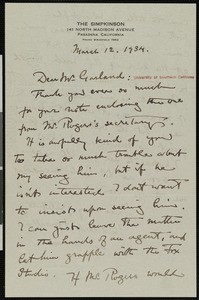 THE SIMPKINSON
141 NORTH MADISON AVENUE
PASADENA, CALIFORNIA
March 12, 1934.
Dear Mr. Garland:
University of Southern California
Thank you ever so much
for your note enclosing this one
from Mr. Rogers's secretary.
It is awfully kind of you
to take so much trouble about
my seeing him, but if he
isn't interested I don't want
to insist upon seeing him.
I can just leave the matter
in the hands of an agent, and
let him grapple with the Fox
Studio. If Mr. Rogers would